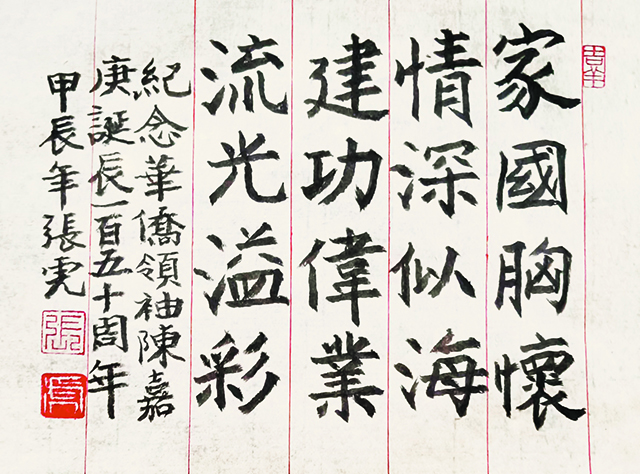 家國胸懷
情深似海
建功偉業
流光溢彩
紀念華僑領袖陳嘉
庚誕長一百五十周年
甲辰年張
張